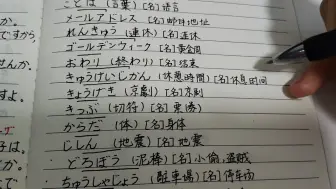 ことば (言葉) [名] 语言
メールアドレス [名] 邮件地址
れんきゅう (連休) [名] 连休
ゴールデンウィーク [名] 黄金周
おわり (終わり) [名] 结束
きゅうけいじかん (休憩時間) [名] 休息时间
きょうげき (京劇) [名] 京剧
きっぷ (切符) [名] 票,券
からだ (体) [名] 身体
じしん (地震) [名] 地震
どろぼう (泥棒) [名] 小偷,盗贼
ちゅうしゃじょう (駐車場) [名] 停车场